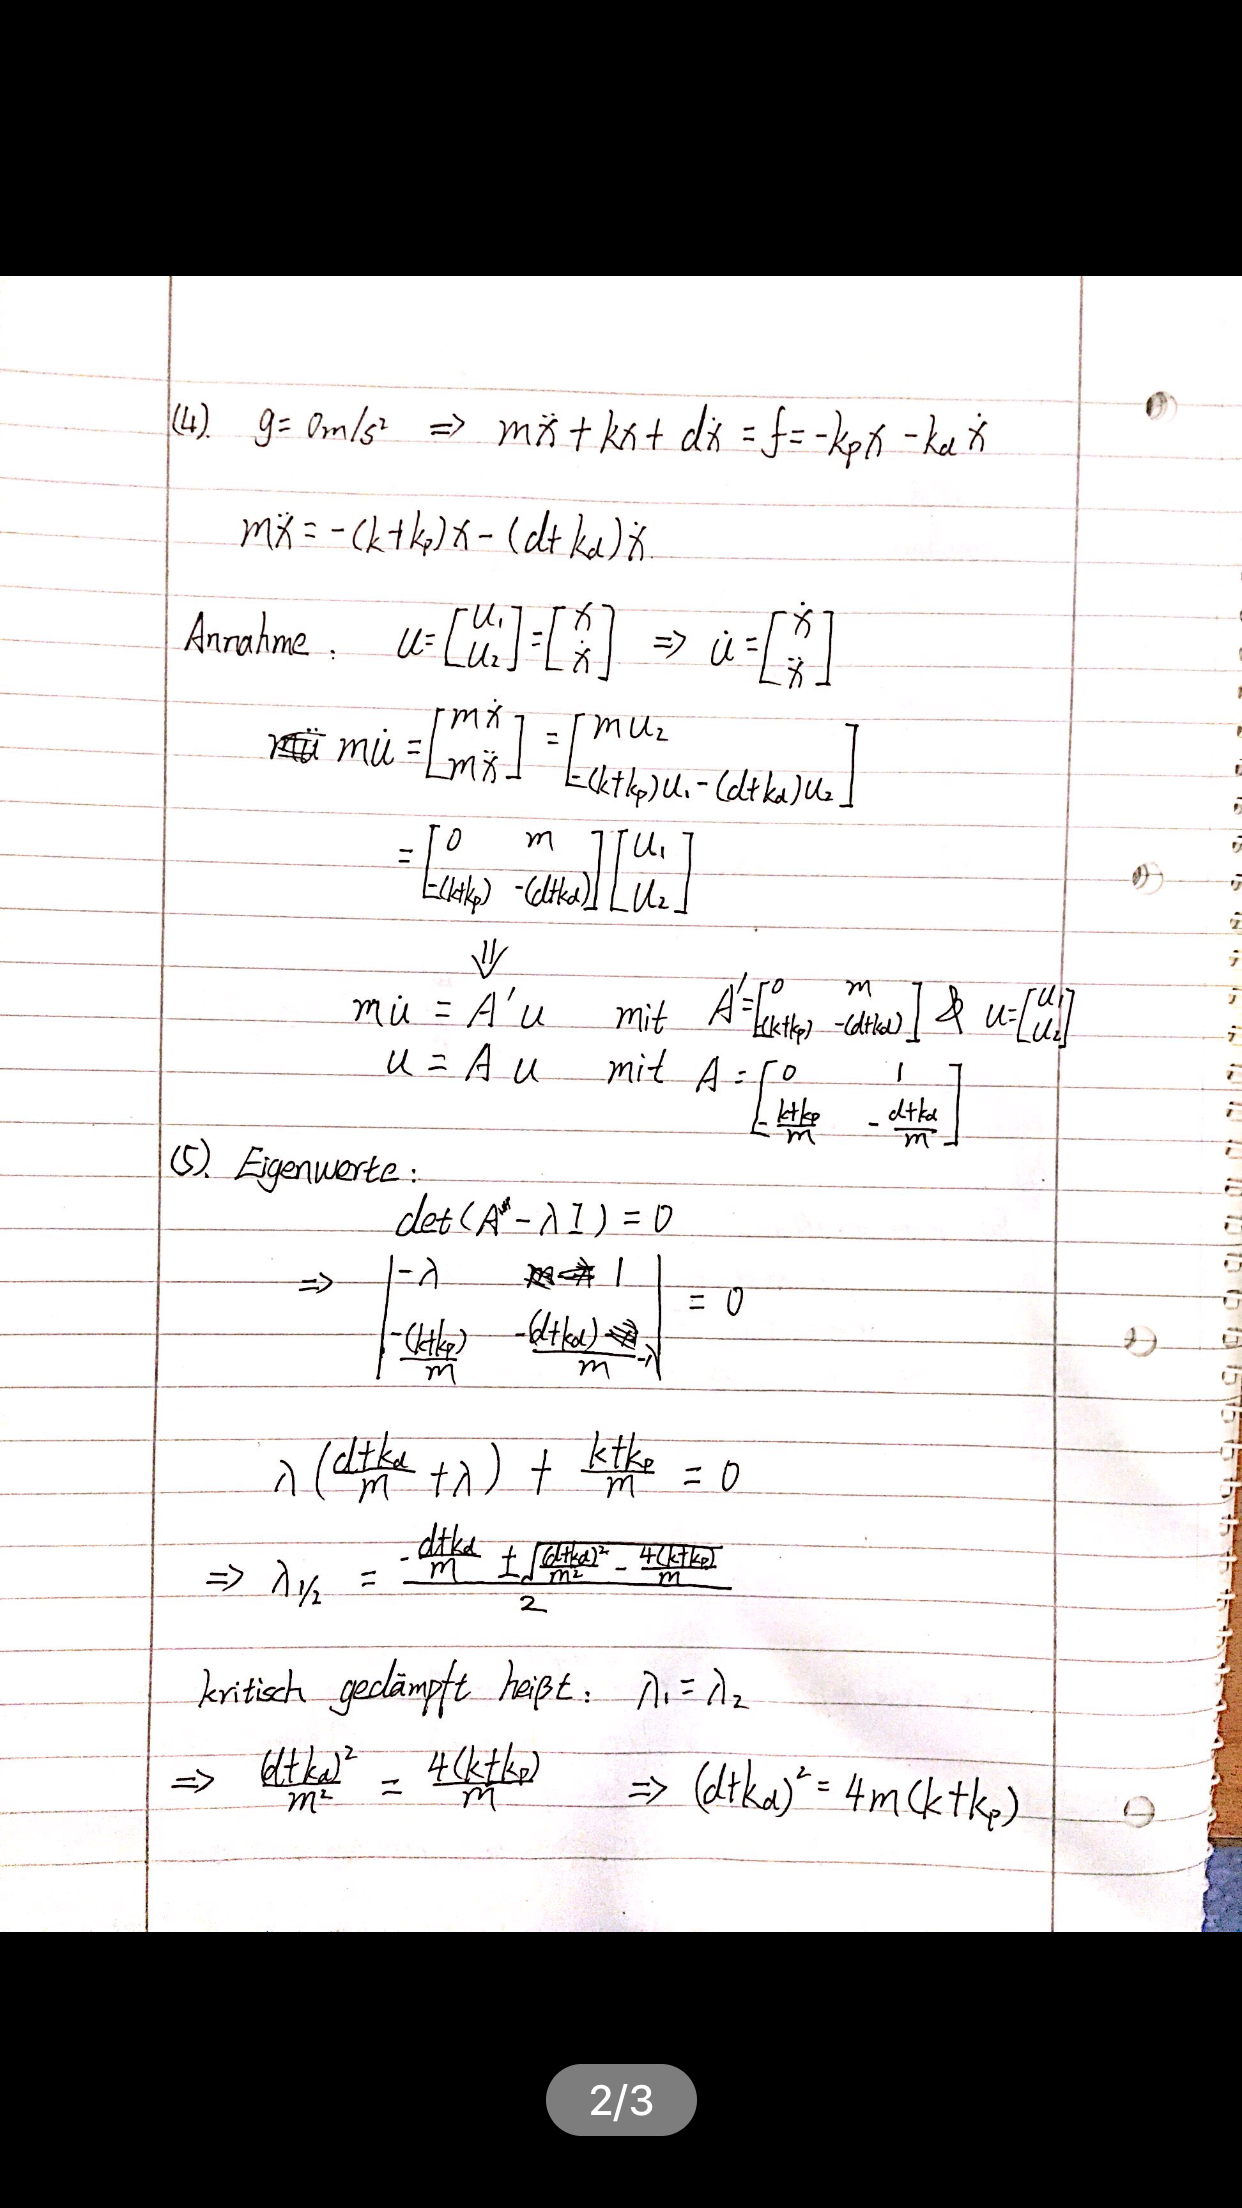 (4). g = 0m/s² ⇒ mẍ + kx + dẋ = f = -kₚx - k_d ẋ
mẍ = -(k+kₚ)x - (d+k_d)ẋ.
Annahme: u = [u₁ u₂] = [x ẋ] ⇒ u̇ = [ẋ ẍ]
mu̇ = [mẋ mẍ] = [mu₂ -(k+kₚ)u₁-(d+k_d)u₂]
= [0 m -(k+kₚ) -(d+k_d)] [u₁ u₂]
⇓
mu̇ = A'u mit A' = [0 m -(k+kₚ) -(d+k_d)] & u = [u₁ u₂]
u = A u mit A = [0 1 -(k+kₚ)/m -(d+k_d)/m]
(5). Eigenwerte:
det(A - λI) = 0
⇒ |-λ 1 -(k+kₚ)/m -(d+k_d)/m -λ| = 0
λ((d+k_d)/m + λ) + (k+kₚ)/m = 0
⇒ λ₁/₂ = (-(d+k_d)/m ± √((d+k_d)²/m² - 4(k+kₚ)/m))/2
kritisch gedämpft heißt: λ₁ = λ₂
⇒ (d+k_d)²/m² = 4(k+kₚ)/m ⇒ (d+k_d)² = 4m(k+kₚ)
2/3